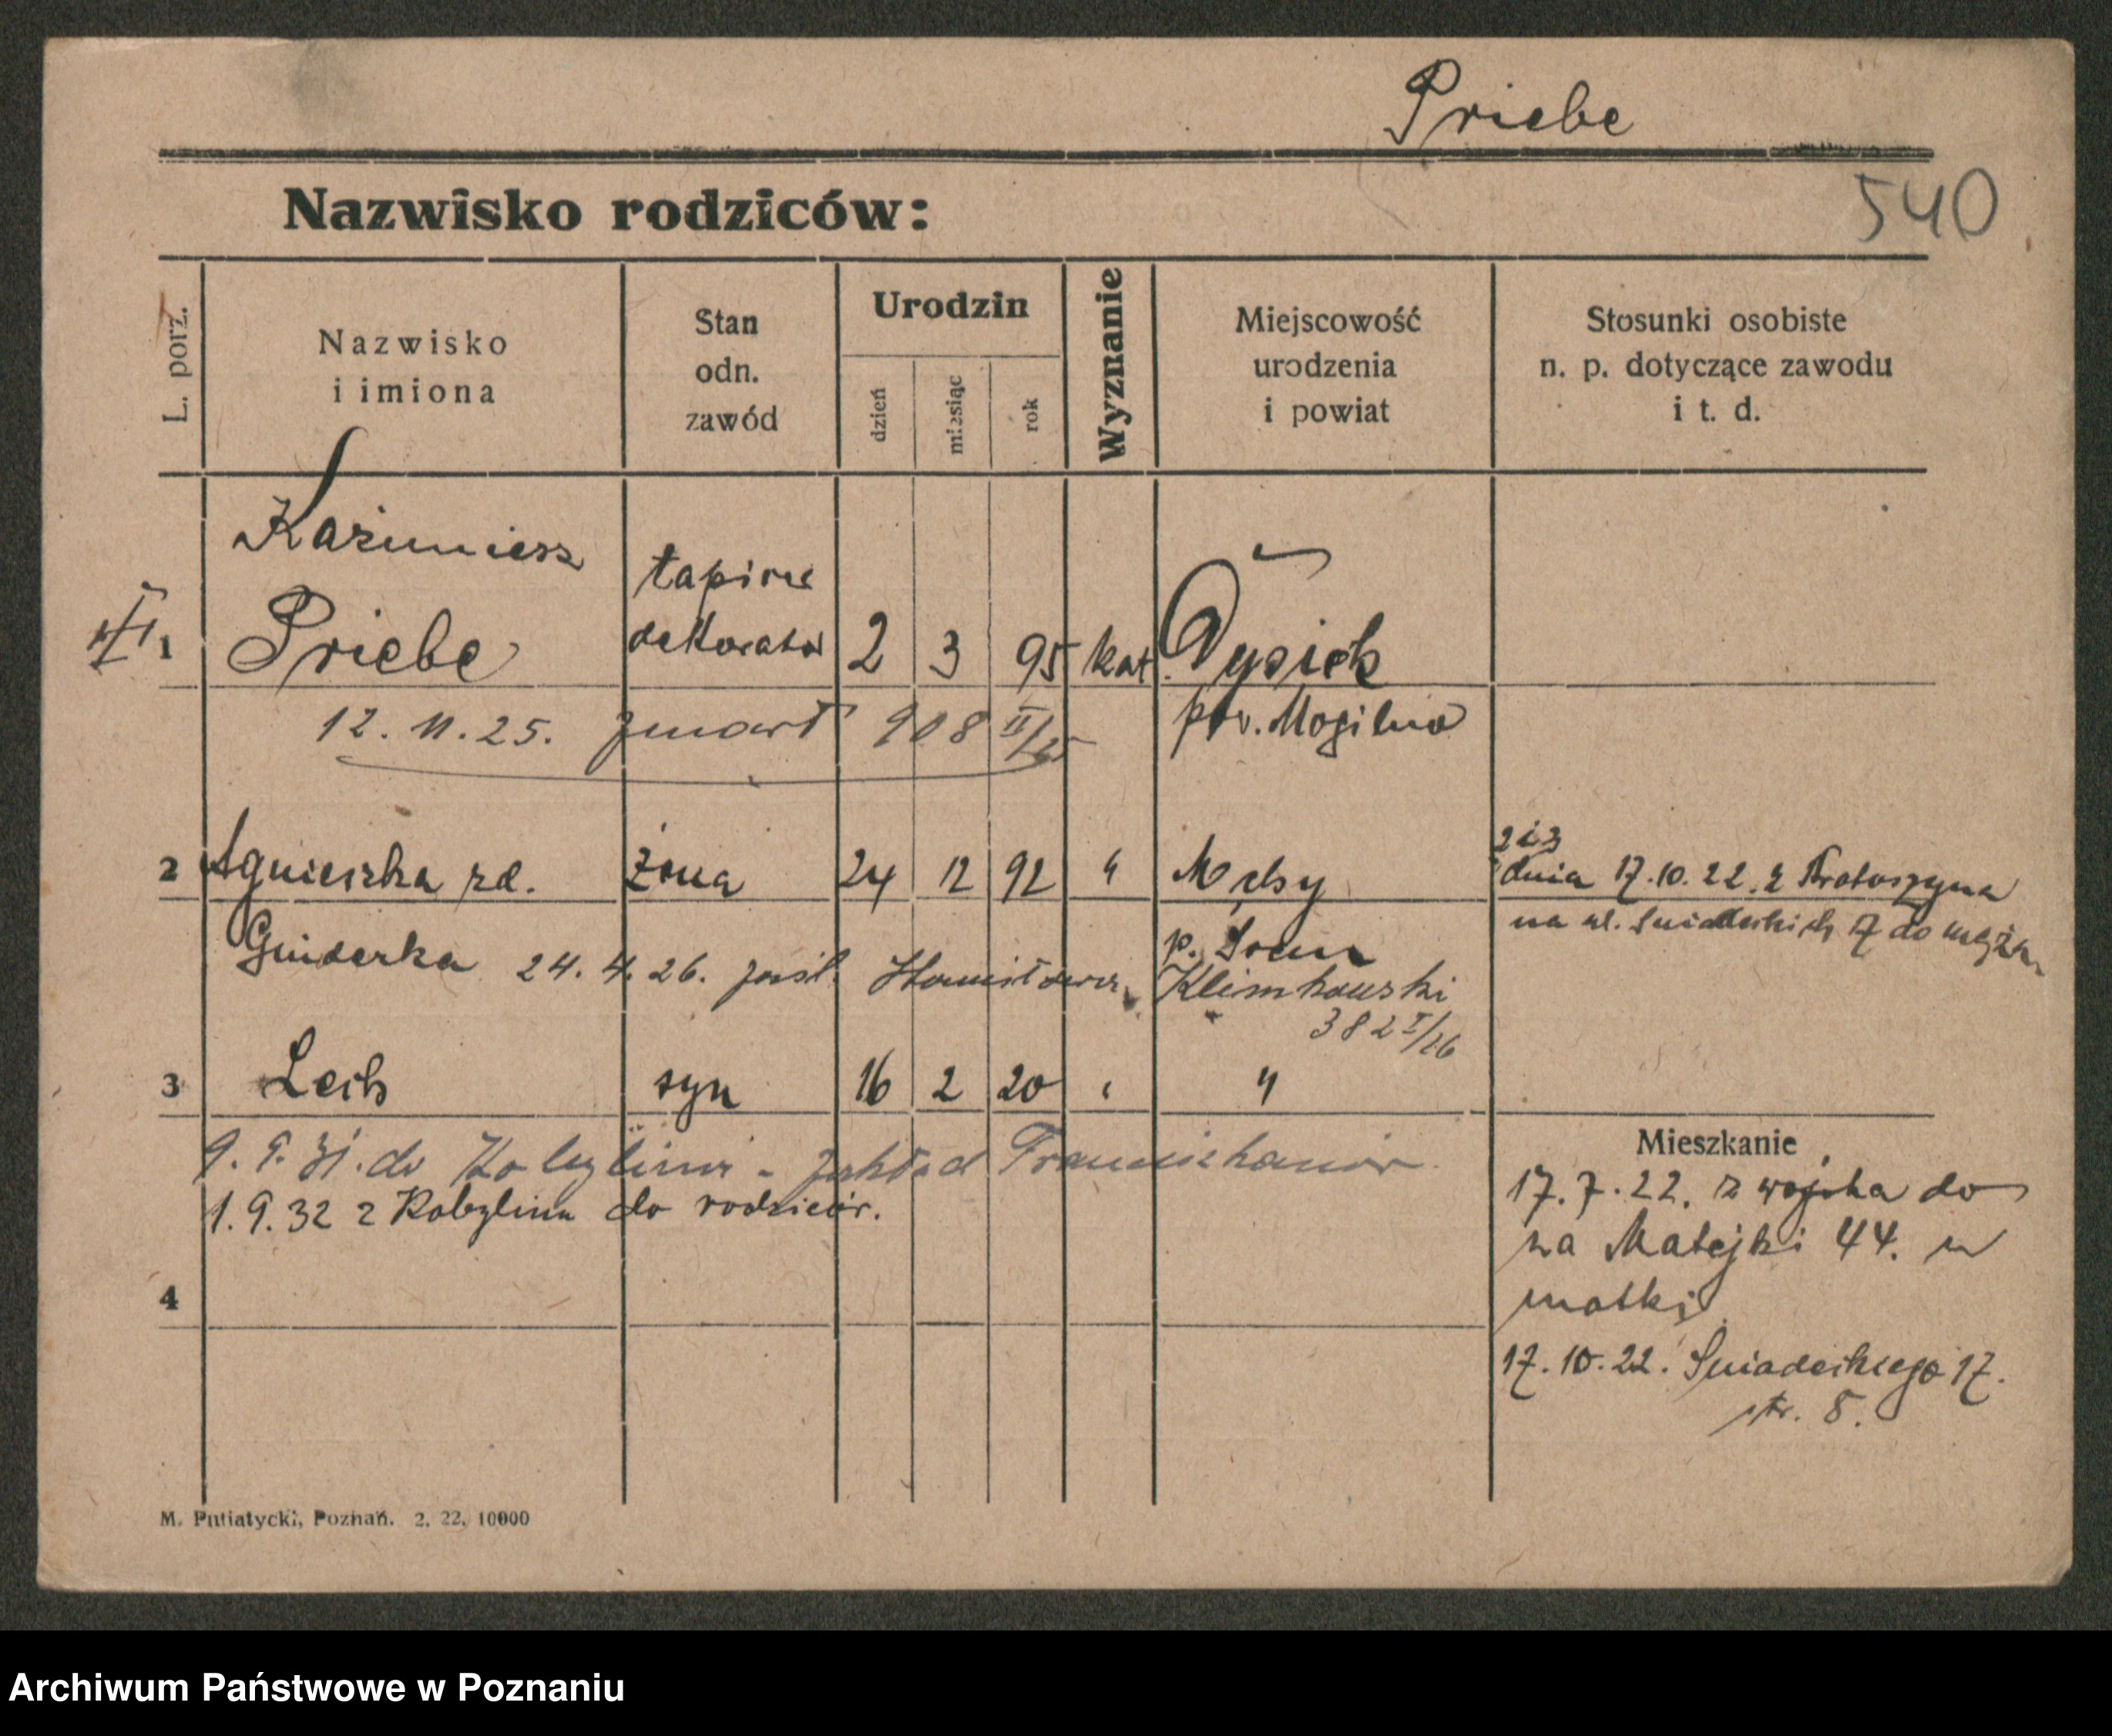 Priebe
540
Nazwisko rodziców:
L. porz.
Nazwisko
i imiona
Stan
odn.
zawód
Urodzin
dzień
miesiąc
rok
Wyznanie
Miejscowość
urodzenia
i powiat
Stosunki osobiste
n. p. dotyczące zawodu
i t. d.
Kazimierz
Priebe
1
dekorator
2 3 95 kat.
pow. Mogilno
12. 11. 25. zmarł 908 II/25
2 Agnieszka rd. żona 24 12 92 "
p. Śrem
2 i 3
dnia 17.10.22. z Krotoszyna
na ul. Śniadeckich 17 do męża
24. 4. 26. zaśl. Stanisława
Klimkowski
382 I/26
3 Lech syn 16 2 20 " "
9. 9. 31. do Kobylina - zakład Franciszkanów.
1. 9. 32 z Kobylina do rodziców.
4
Mieszkanie
17. 7. 22. z wojska do
na Matejki 44. u
matki
17. 10. 22. Śniadeckiego 17.
str. 8.
M. Putiatycki, Poznań. 2. 22. 10000
Archiwum Państwowe w Poznaniu